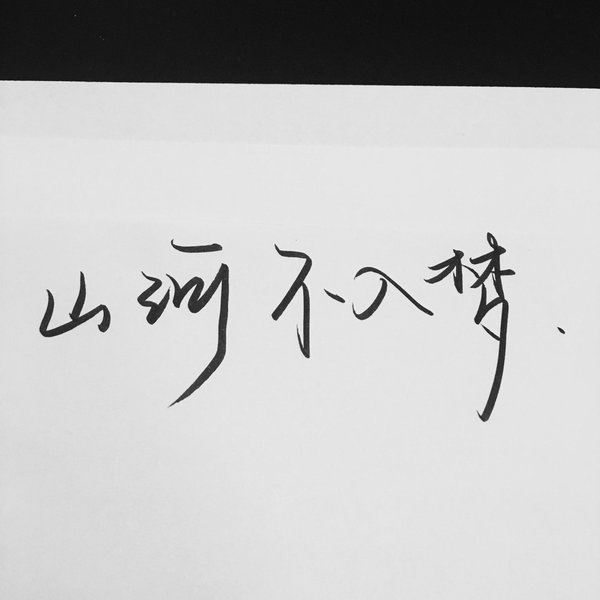 山河不入梦.